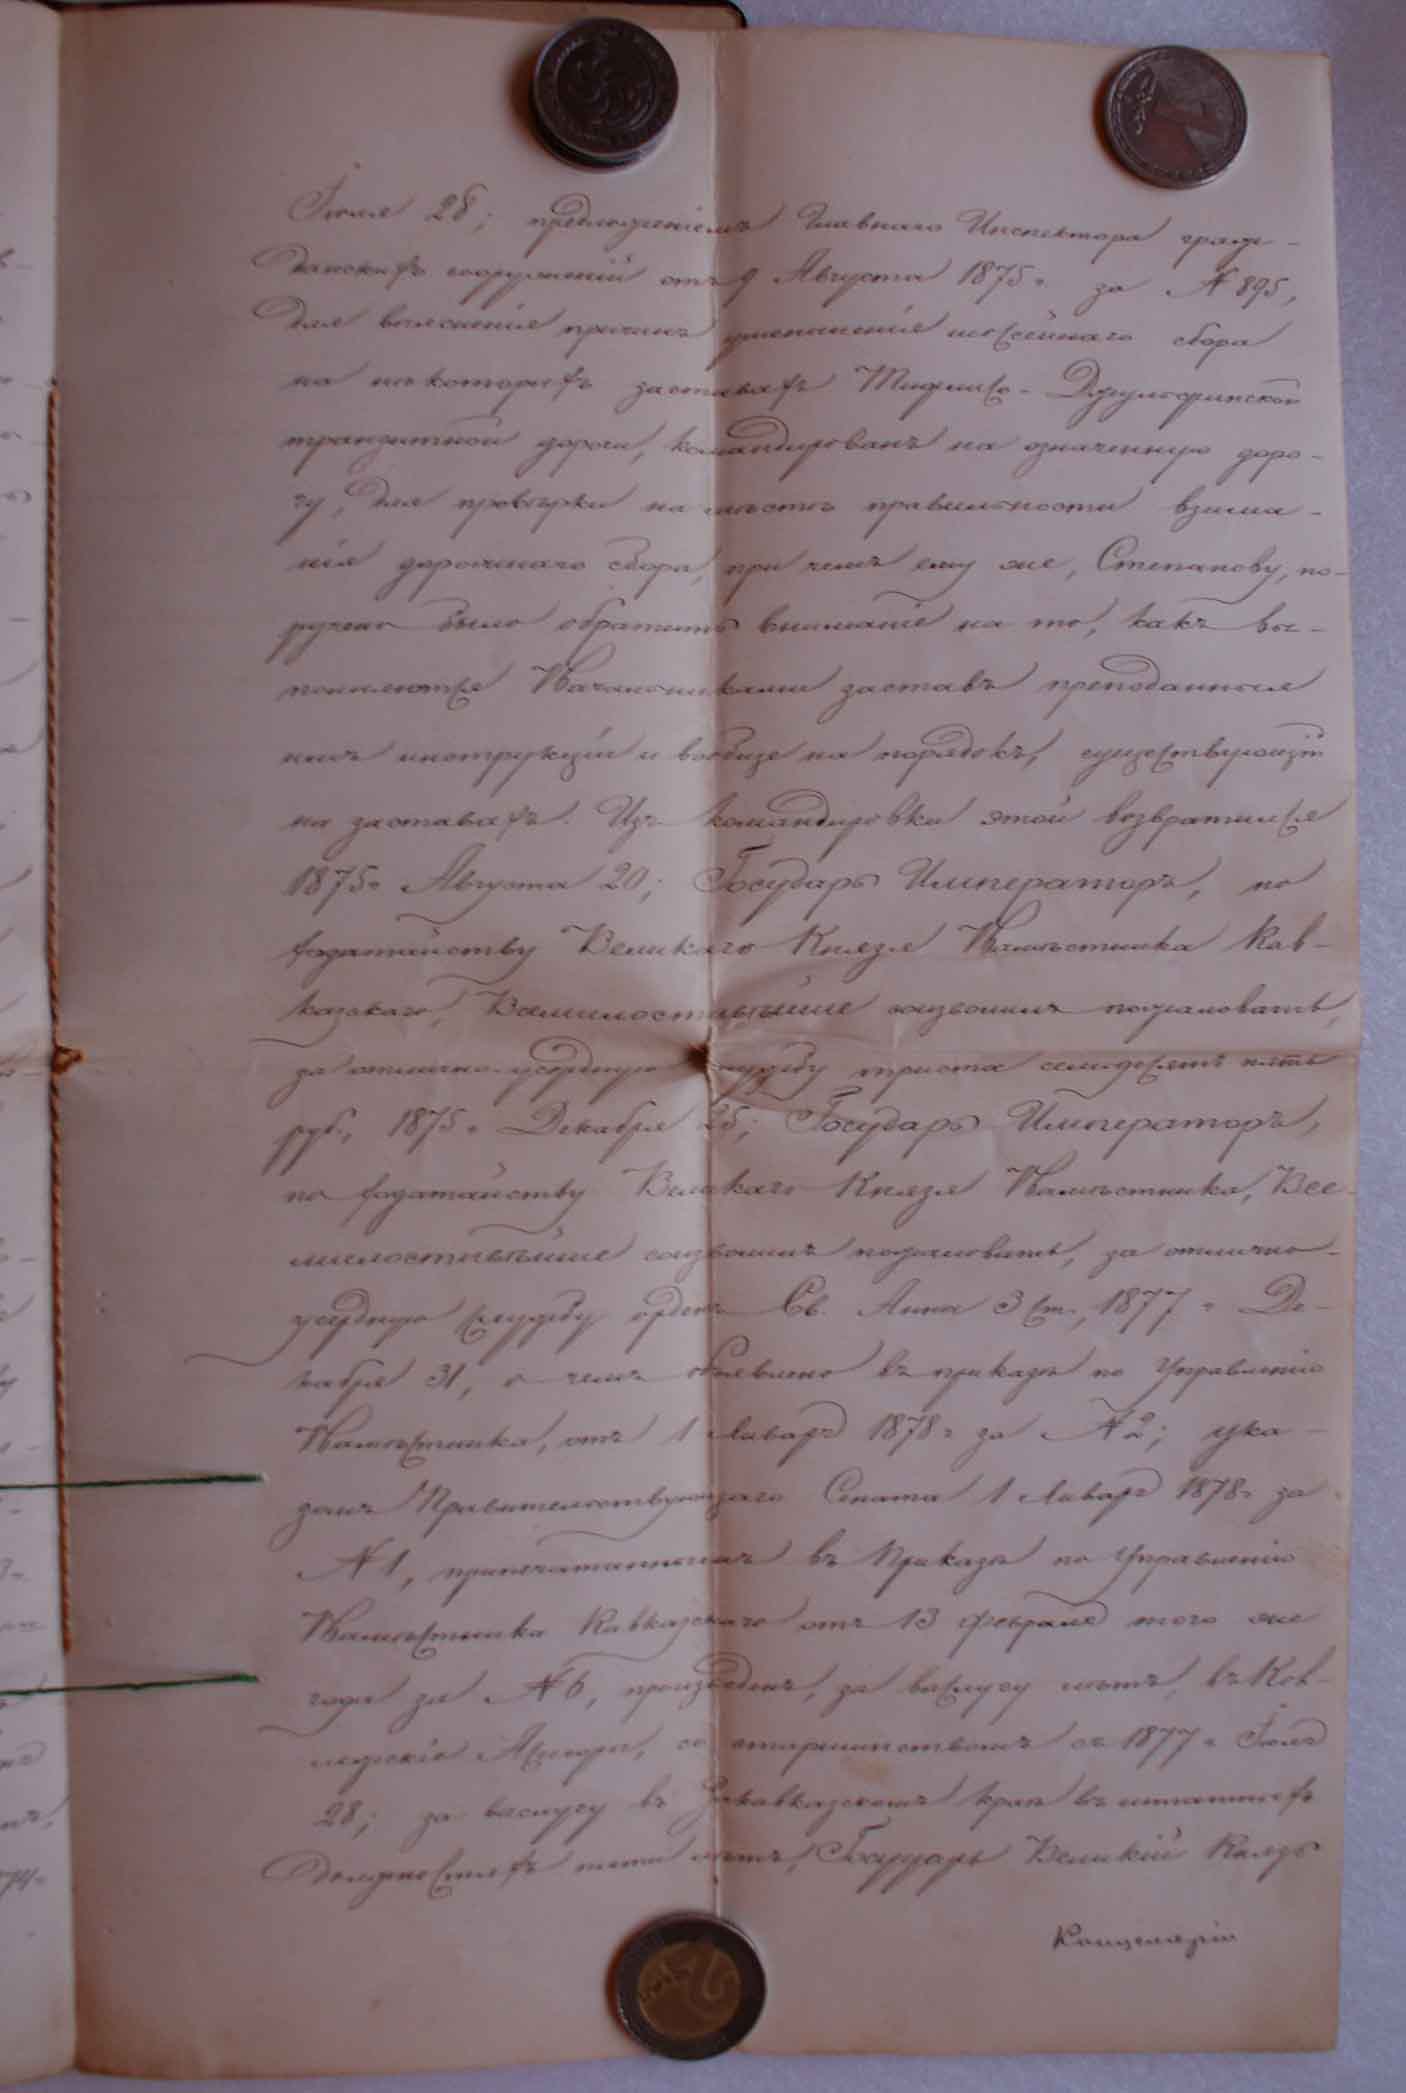 Іюля 28; предложеніемъ Главнаго Инспектора граж-
данскихъ сооруженій отъ 9 Августа 1875 г. за № 895,
для выясненія причинъ уменьшенія шоссейнаго сбора
на нѣкоторыхъ заставахъ Тифлисо-Джульфинской
транзитной дороги, командированъ на означенную доро-
гу, для провѣрки на мѣстѣ правильности взима-
нія дорожнаго сбора, при чемъ ему же, Степанову, по-
ручено было обратить вниманіе на то, какъ вы-
полняются Начальниками заставъ преподанныя
имъ инструкціи и вообще на порядокъ, существующій
на заставахъ. Изъ командировки этой возвратился
1875 г. Августа 20; Государь Императоръ, по
ходатайству Великаго Князя Намѣстника Кав-
казскаго, Всемилостивѣйше соизволилъ пожаловать,
за отлично-усердную службу триста семьдесятъ пять
руб., 1875 г. Декабря 25; Государь Императоръ,
по ходатайству Великаго Князя Намѣстника, Все-
милостивѣйше соизволилъ пожаловать, за отлично-
усердную службу орденъ Св. Анны 3 ст., 1877 г. Де-
кабря 31, о чемъ объявлено въ приказѣ по Управленію
Намѣстника, отъ 1 Января 1878 г. за № 2; ука-
зомъ Правительствующаго Сената 1 Января 1878 г. за
№ 1, припечатаннымъ въ Приказѣ по Управленію
Намѣстника Кавказскаго отъ 13 Февраля того же
года за № 6, произведенъ, за выслугу лѣтъ, въ Кол-
лежскіе Асесоры, со старшинствомъ съ 1877 г. Іюля
28; за выслугу въ Закавказскомъ краѣ въ штатныхъ
должностяхъ пяти лѣтъ, Государь Великій Князь
Канцелярію